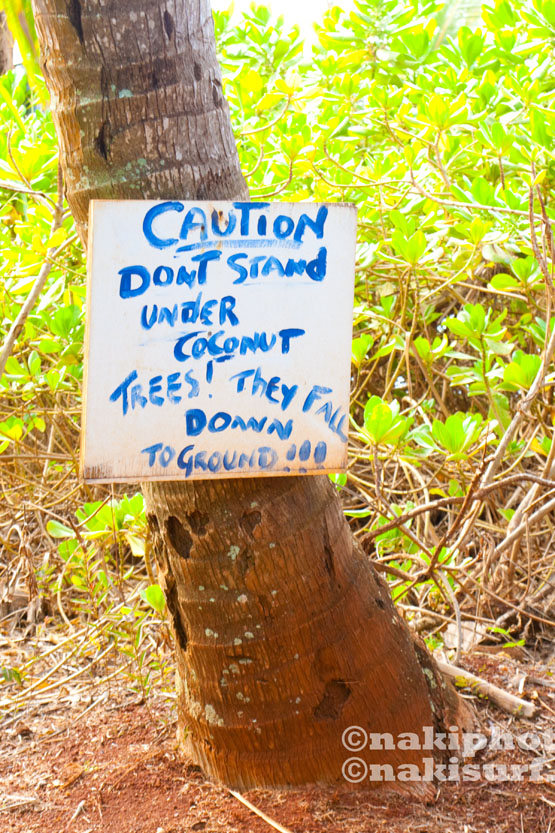 CAUTION
DONT STAND
UNDER
COCONUT
TREES! THEY FALL
DOWN
TO GROUND!!!
©nakipho
©nakisurf